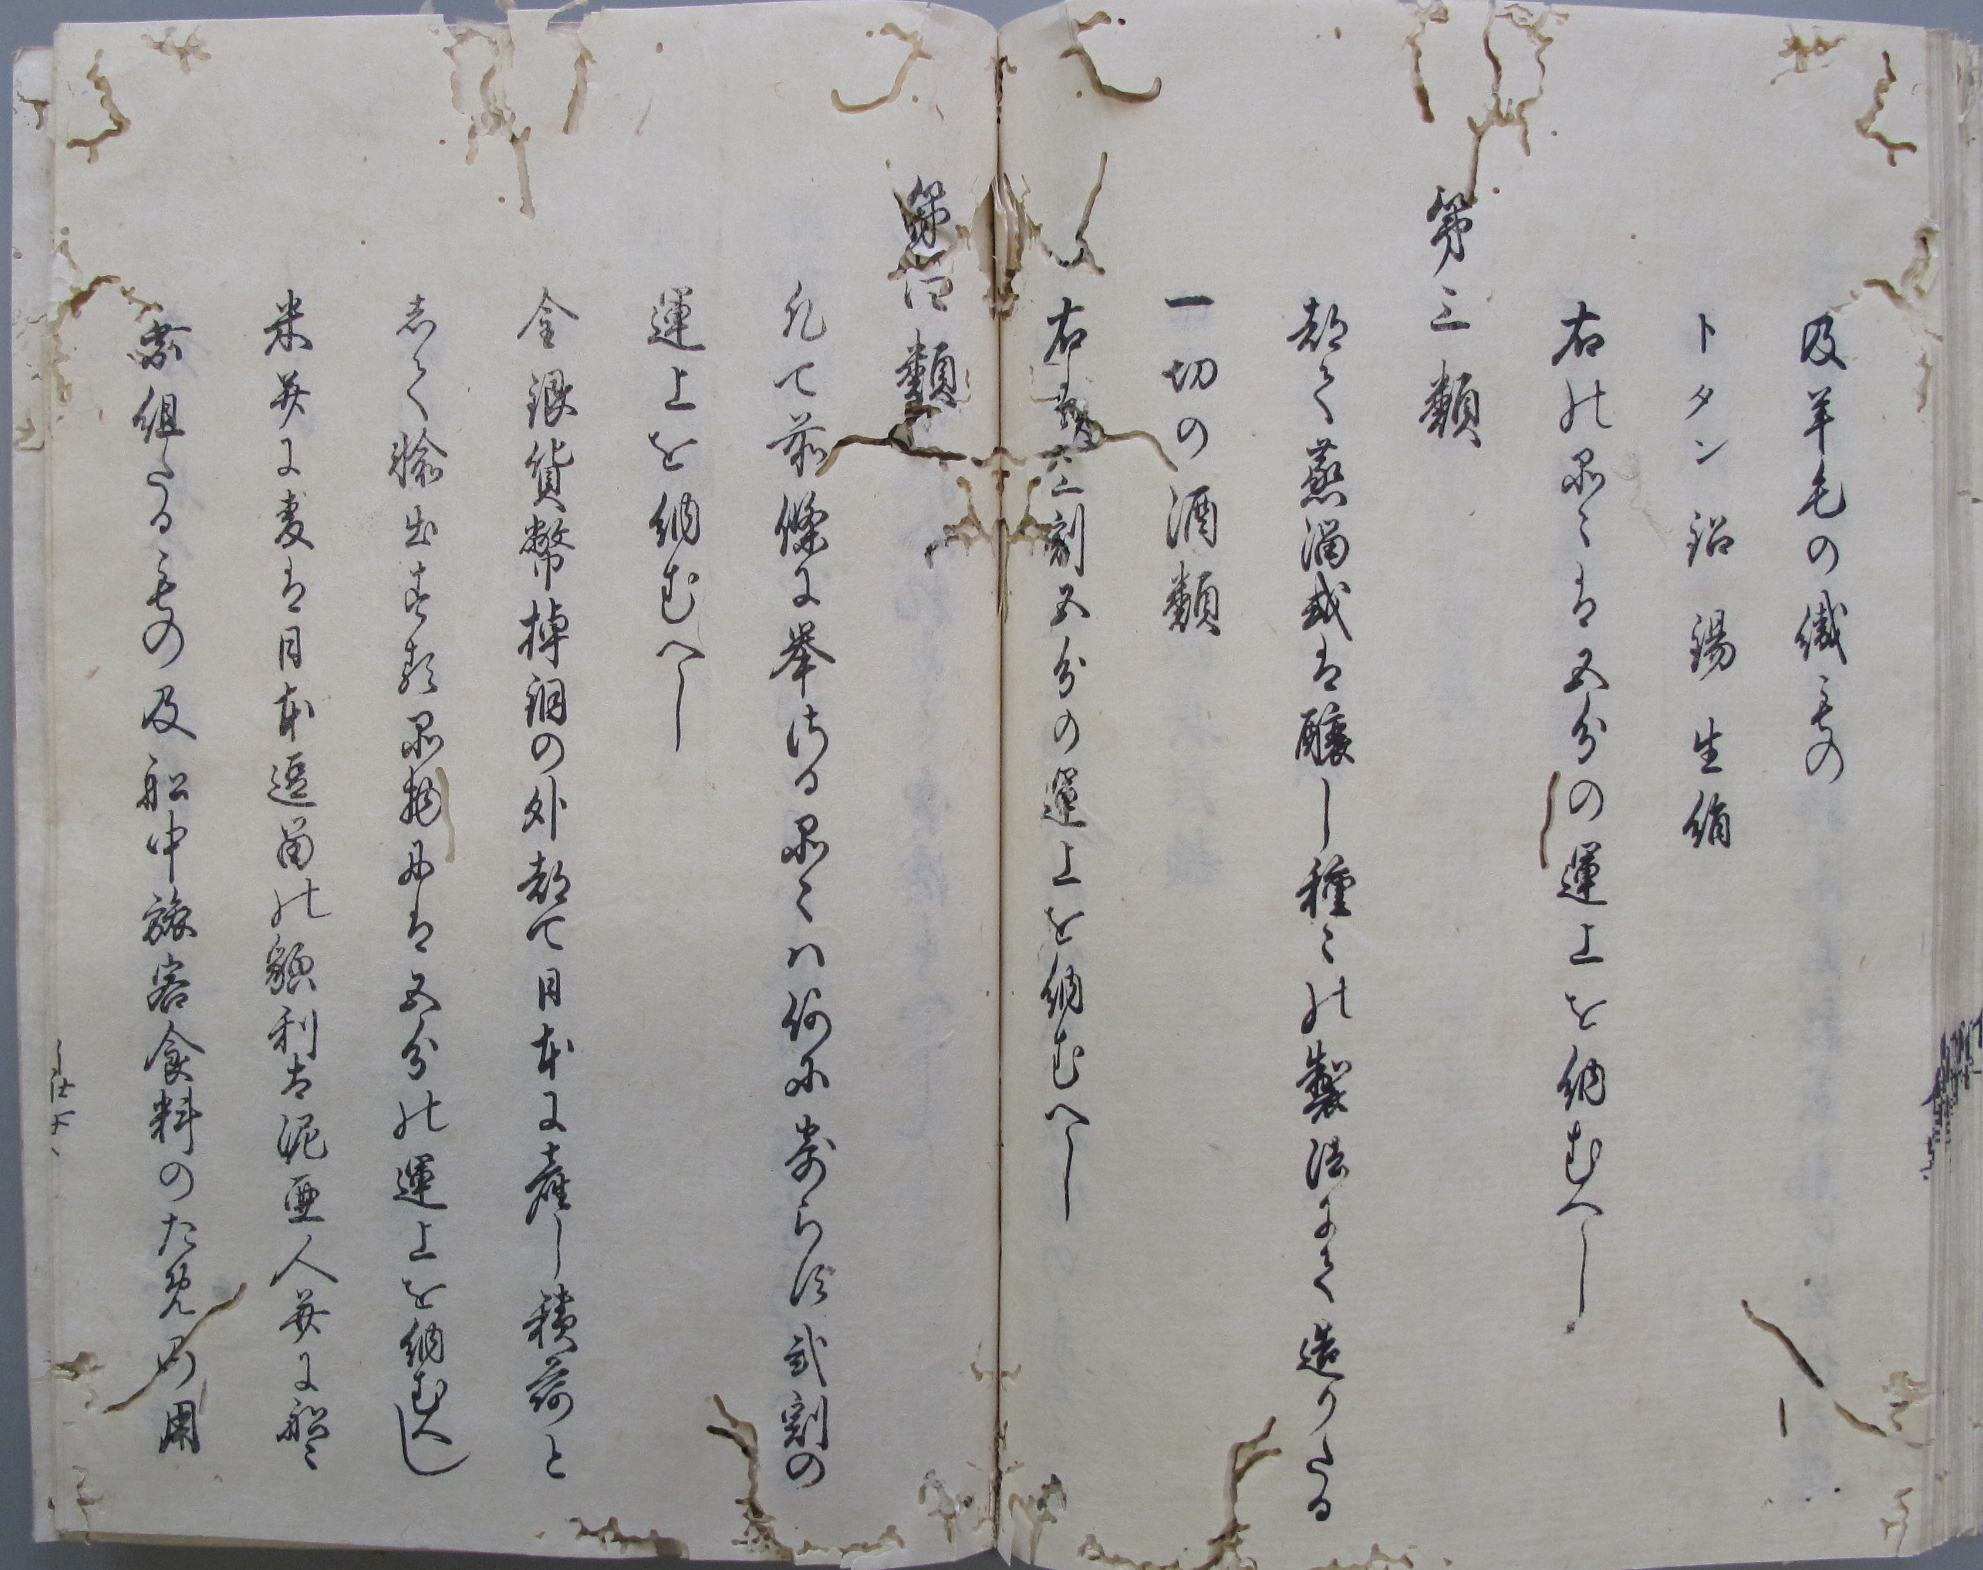 及羊毛の織もの
トタン鉛錫生絹
右の品々は五分の運上を納むへし
第三類
都て蒸溜或は醸し種々の製法にて造りたる
一切の酒類
右は三割五分の運上を納むへし
第四類
凡て前條に挙さる品々ハ何に寄らす弐割の
運上を納むへし
金銀貨幣棹銅の外都て日本に産し積荷と
して輸出する品物には五分の運上を納むへし
米并に麦は日本逗留の貌利太泥亜人并に船々
乗組たるもの及船中旅客食料のため の用